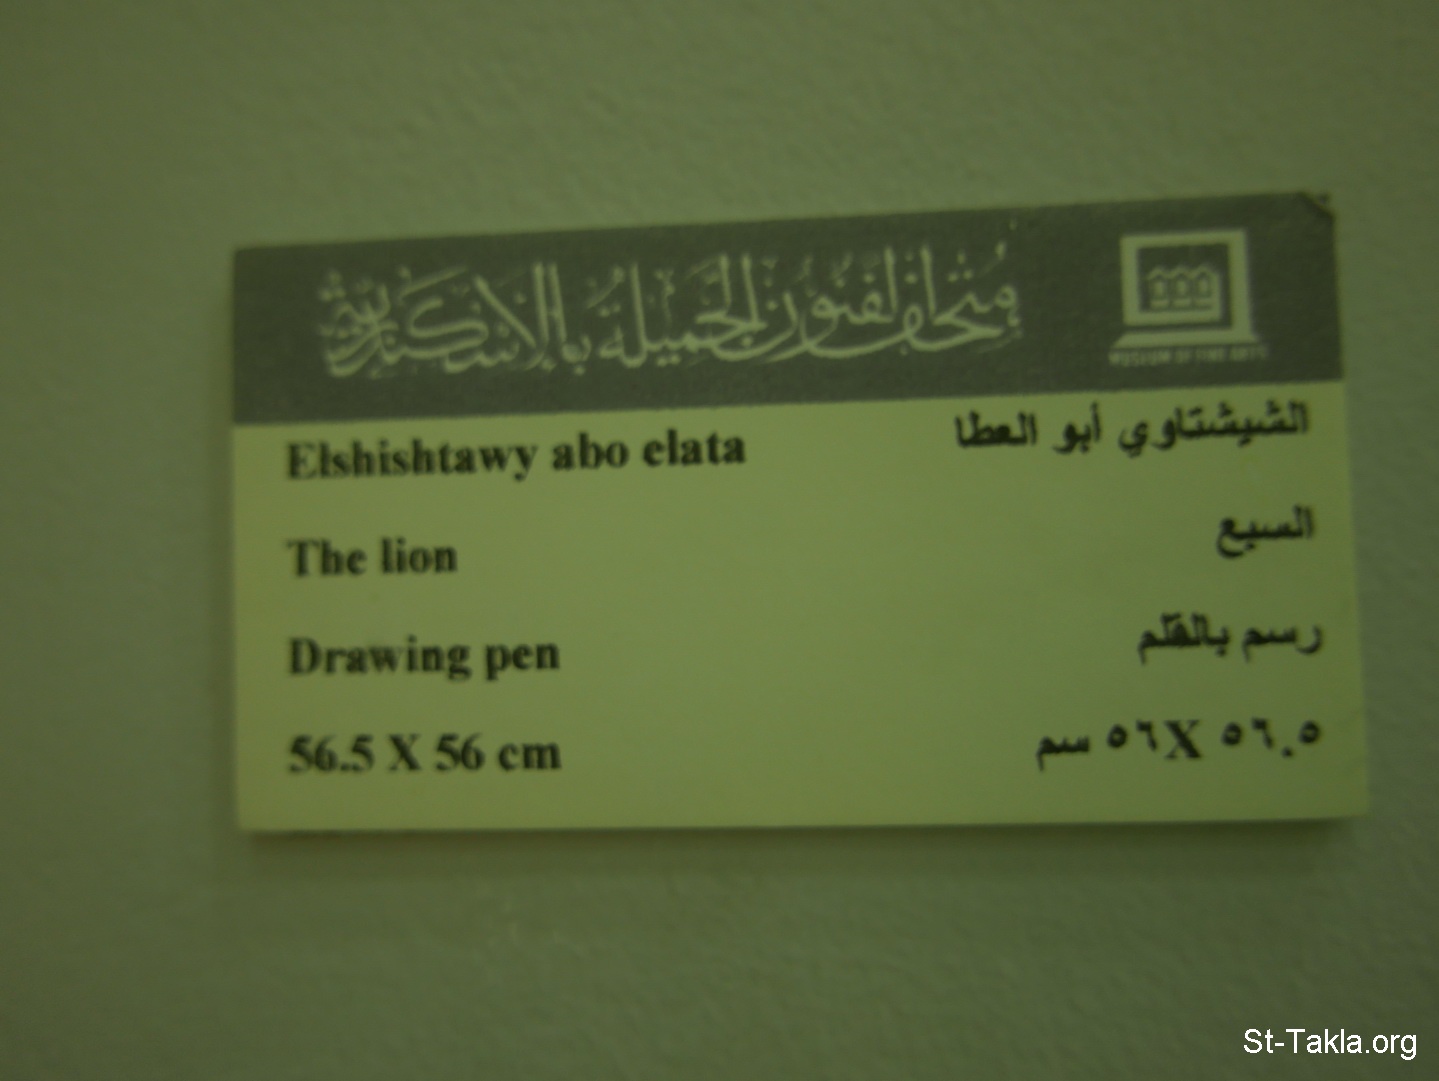 متحف الفنون الجميلة بالإسكندرية
MUSEUM OF FINE ARTS
Elshishtawy abo elata
الشيشتاوي أبو العطا
The lion
السبع
Drawing pen
رسم بالقلم
56.5 X 56 cm
٥٦.٥ X ٥٦ سم
St-Takla.org